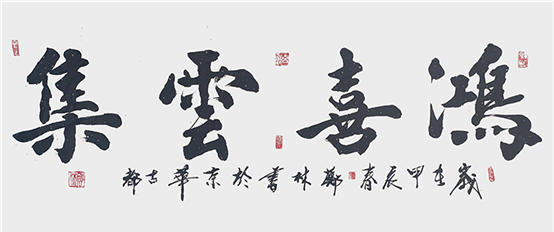 鴻喜雲集
歲在甲辰春鄭林書於京華古都